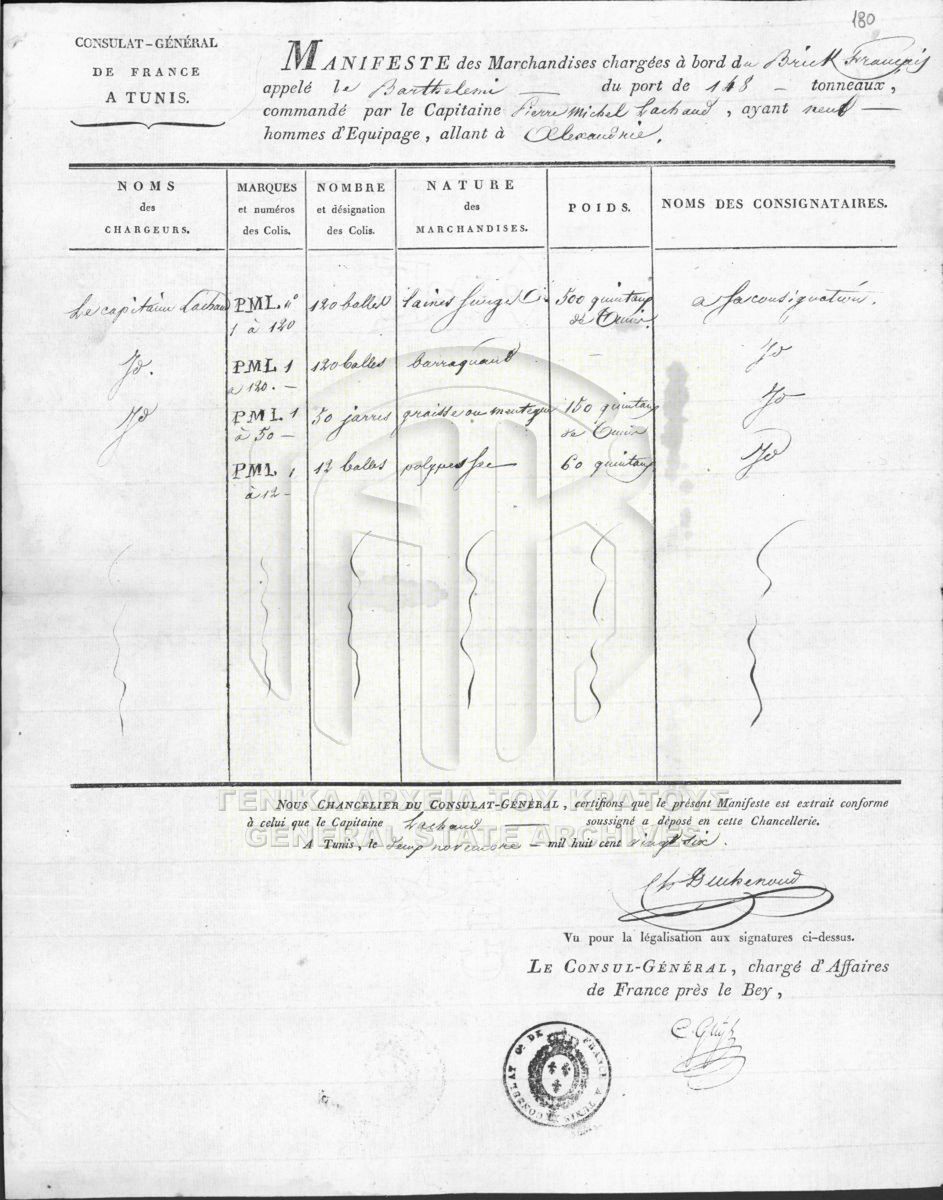 180
CONSULAT-GÉNÉRAL
DE FRANCE
A TUNIS.
MANIFESTE des Marchandises chargées à bord du Brick Français
appelé le Barthelemi — du port de 148 — tonneaux,
commandé par le Capitaine Pierre Michel Lachaud, ayant neuf —
hommes d'Equipage, allant à Alexandrie.
NOMS des CHARGEURS.
MARQUES et numéros des Colis.
NOMBRE et désignation des Colis.
NATURE des MARCHANDISES.
POIDS.
NOMS DES CONSIGNATAIRES.
Le capitaine Lachaud PML n° 120 balles laines 500 quintaux a sa consignation.
1 à 120 de Tunis.
Jd. PML 1 120 balles barraquans — Jd
a 120. —
Jd PML 1 50 jarres graisse ou manteque 150 quintaux Jd
à 50 — de Tunis
PML 1 12 balles 60 quintaux Jd
à 12 —
ΓΕΝΙΚΑ ΑΡΧΕΙΑ ΤΟΥ ΚΡΑΤΟΥΣ
GENERAL STATE ARCHIVES
NOUS CHANCELIER DU CONSULAT-GÉNÉRAL, certifions que le présent Manifeste est extrait conforme
à celui que le Capitaine Lachaud — soussigné a déposé en cette Chancellerie.
A Tunis, le novembre — mil huit cent vingt six.
Vu pour la légalisation aux signatures ci-dessus.
LE CONSUL-GÉNÉRAL, chargé d'Affaires
de France près le Bey,
CONSULAT Gl DE FRANCE A TUNIS